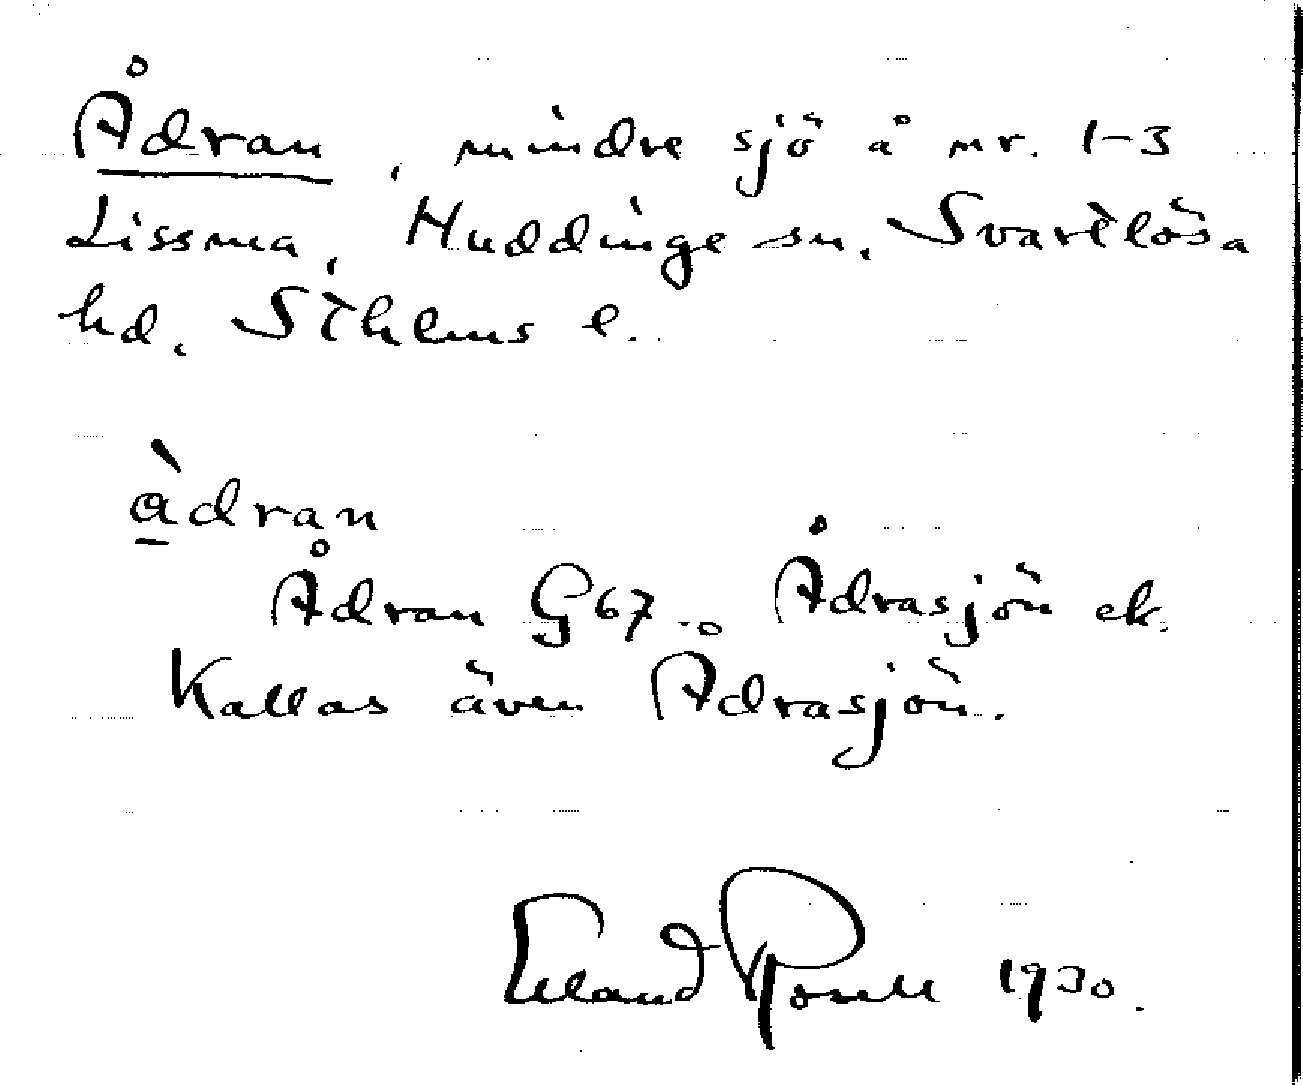 Ådran, mindre sjö å nr. 1-3
Lissma, Huddinge sn, Svartlösa
hd, Sthlms l.
àdran
Ådran G67. Ådrasjön ek.
Kallas även Ådrasjön.
Erland Rosell 1930.